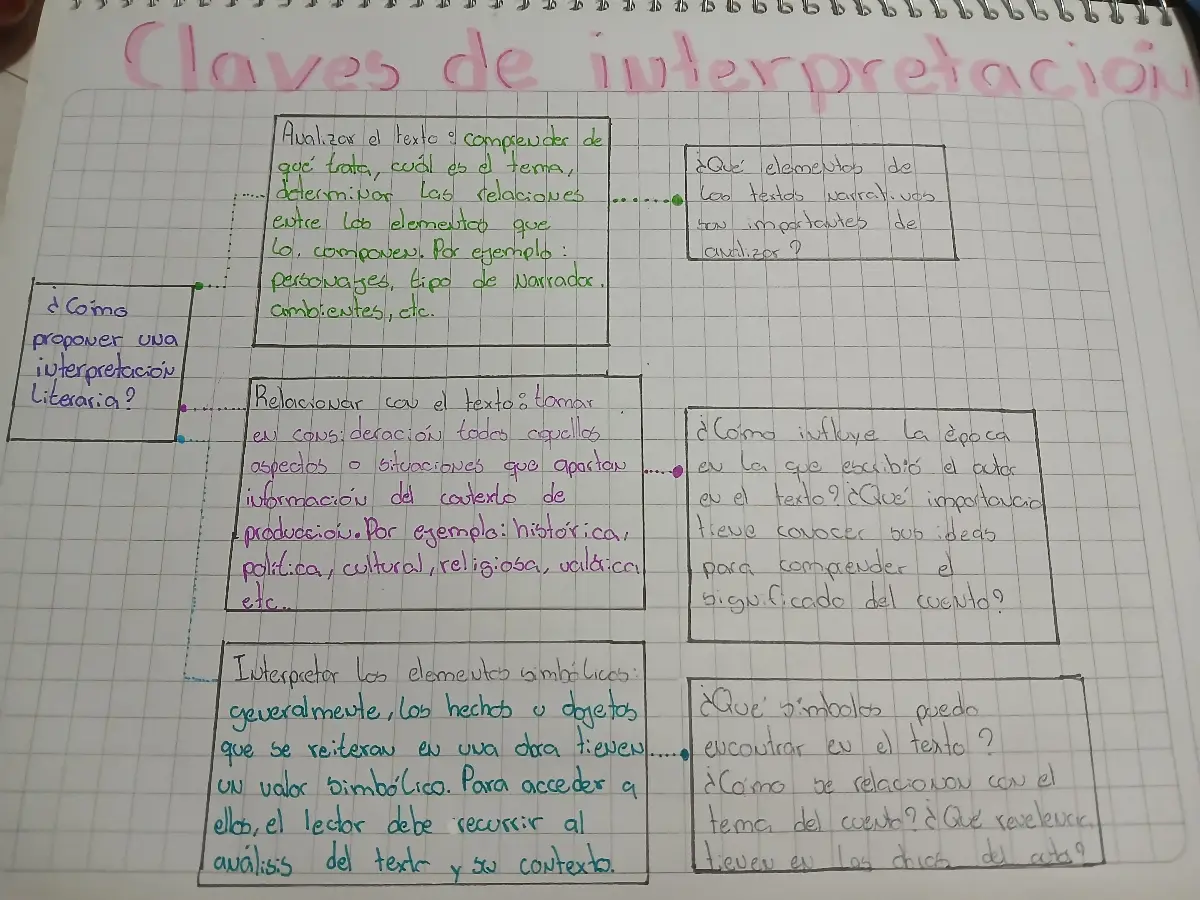 Claves de interpretación
¿Cómo
proponer una
interpretación
literaria?
Analizar el texto: comprender de
qué trata, cuál es el tema,
determinar las relaciones
entre los elementos que
lo, componen. Por ejemplo:
personajes, tipo de narrador,
ambientes, etc.
¿Qué elementos de
los textos narrativos
son importantes de
analizar?
Relacionar con el texto: tomar
en consideración todos aquellos
aspectos o situaciones que aportan
información del contexto de
producción. Por ejemplo: histórica,
política, cultural, religiosa, valórica
etc..
¿Cómo influye la época
en la que escribió el autor
en el texto? ¿Qué importancia
tiene conocer sus ideas
para comprender el
significado del cuento?
Interpretar los elementos simbólicos:
generalmente, los hechos u objetos
que se reiteran en una obra tienen
un valor simbólico. Para acceder a
ellos, el lector debe recurrir al
análisis del texto y su contexto.
¿Qué símbolos puedo
encontrar en el texto?
¿Cómo se relacionan con el
tema del cuento? ¿Qué
tienen en las del